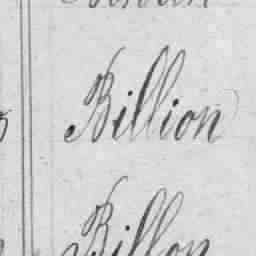 Billion
Billon